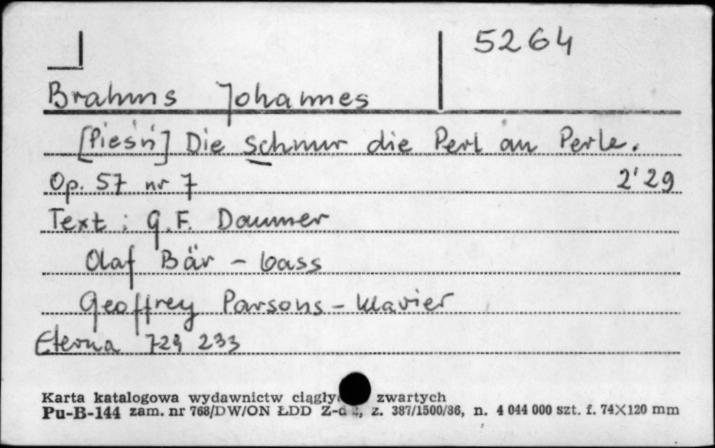 5264
Brahms Johannes
[Pieśń] Die Schnur die Perl an Perle.
Op. 57 nr 7 2'29
Text : G.F. Daumer
Olaf Bär - bass
Geoffrey Parsons - klavier
Eterna 729 233
Karta katalogowa wydawnictw zwartych
Pu-B-144 zam. nr 768/DW/ON ŁDD z. 387/1500/86, n. 4 044 000 szt. f. 74×120 mm